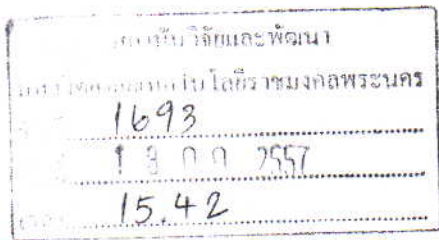 สถาบันวิจัยและพัฒนา
มหาวิทยาลัยเทคโนโลยีราชมงคลพระนคร
1693
ก.ค. 2557
15.42